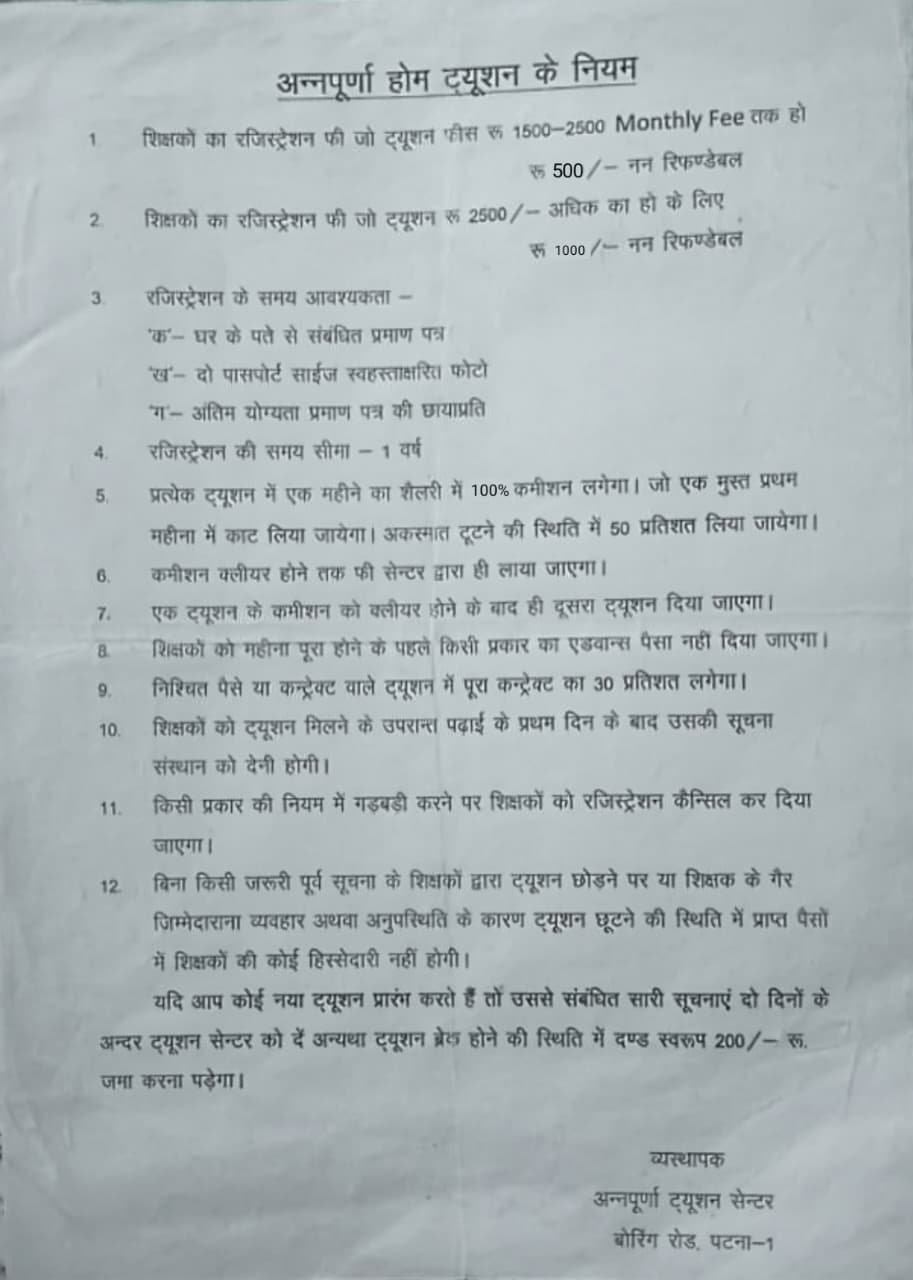 अन्नपूर्णा होम ट्यूशन के नियम
1. शिक्षकों का रजिस्ट्रेशन फी जो ट्यूशन फीस रू 1500–2500 Monthly Fee तक हो
रू 500 /– नन रिफण्डेबल
2. शिक्षकों का रजिस्ट्रेशन फी जो ट्यूशन रू 2500/– अधिक का हो के लिए
रू 1000 /– नन रिफण्डेबल
3. रजिस्ट्रेशन के समय आवश्यकता –
'क'– घर के पते से संबंधित प्रमाण पत्र
'ख'– दो पासपोर्ट साईज स्वहस्ताक्षरित फोटो
'ग'– अंतिम योग्यता प्रमाण पत्र की छायाप्रति
4. रजिस्ट्रेशन की समय सीमा – 1 वर्ष
5. प्रत्येक ट्यूशन में एक महीने का शैलरी में 100% कमीशन लगेगा। जो एक मुस्त प्रथम
महीना में काट लिया जायेगा। अकस्मात टूटने की स्थिति में 50 प्रतिशत लिया जायेगा।
6. कमीशन क्लीयर होने तक फी सेन्टर द्वारा ही लाया जाएगा।
7. एक ट्यूशन के कमीशन को क्लीयर होने के बाद ही दूसरा ट्यूशन दिया जाएगा।
8. शिक्षकों को महीना पूरा होने के पहले किसी प्रकार का एडवान्स पैसा नहीं दिया जाएगा।
9. निश्चित पैसे या कन्ट्रेक्ट वाले ट्यूशन में पूरा कन्ट्रेक्ट का 30 प्रतिशत लगेगा।
10. शिक्षकों को ट्यूशन मिलने के उपरान्त पढ़ाई के प्रथम दिन के बाद उसकी सूचना
संस्थान को देनी होगी।
11. किसी प्रकार की नियम में गड़बड़ी करने पर शिक्षकों को रजिस्ट्रेशन कैन्सिल कर दिया
जाएगा।
12. बिना किसी जरूरी पूर्व सूचना के शिक्षकों द्वारा ट्यूशन छोड़ने पर या शिक्षक के गैर
जिम्मेदाराना व्यवहार अथवा अनुपस्थिति के कारण ट्यूशन छूटने की स्थिति में प्राप्त पैसों
में शिक्षकों की कोई हिस्सेदारी नहीं होगी।
यदि आप कोई नया ट्यूशन प्रारंभ करते हैं तो उससे संबंधित सारी सूचनाएं दो दिनों के
अन्दर ट्यूशन सेन्टर को दें अन्यथा ट्यूशन ब्रेक होने की स्थिति में दण्ड स्वरूप 200/– रू.
जमा करना पड़ेगा।
व्यस्थापक
अन्नपूर्णा ट्यूशन सेन्टर
बोरिंग रोड, पटना–1